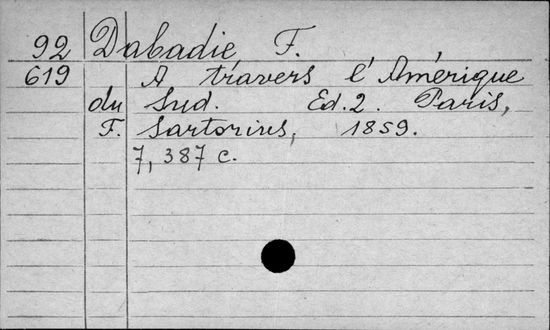 92 Dabadie F.
619 A travers l'Amérique
du Sud. Ed. 2. Paris,
F. Sartorius, 1859.
7, 387 c.